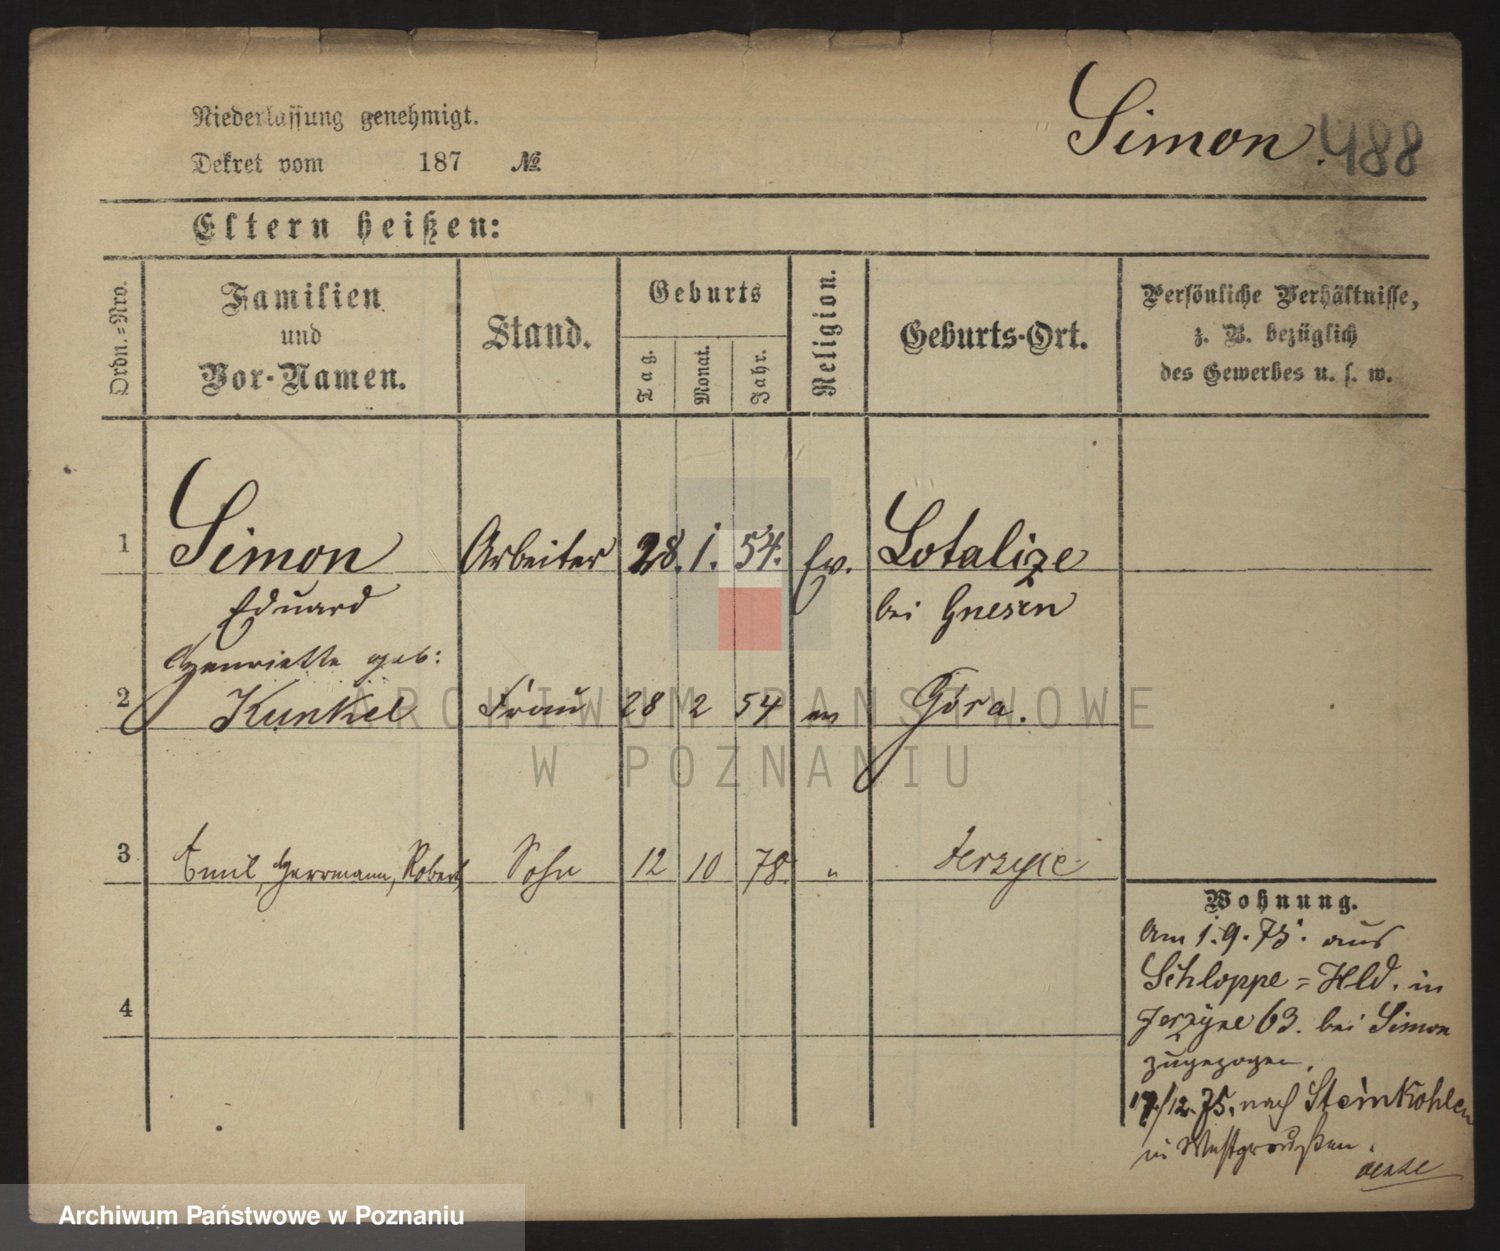 Niederlassung genehmigt.
Dekret vom 187 №
Simon. 488
Eltern heißen:
Ordn.=Nro.
Familien
und
Vor-Namen.
Stand.
Geburts
Tag.
Monat.
Jahr.
Religion.
Geburts-Ort.
Persönliche Verhältnisse,
z. B. bezüglich
des Gewerbes u. s. w.
1 Simon Arbeiter 28. 1. 54. Ev. Lotalize
Eduard bei Gnesen
Henriette geb:
2 Kunkel Frau 28 2 54 ev Góra.
3 Emil, Herrmann, Robert Sohn 12 10 78. " Jerzyce
4
Wohnung.
Am 1. 9. 75. aus
Schloppe=Hld. in
Jerzyce 63. bei Simon
zugezogen.
17/12. 75. nach Steinkohlen
in Westpreußen.
ARCHIWUM PAŃSTWOWE
W POZNANIU
Archiwum Państwowe w Poznaniu